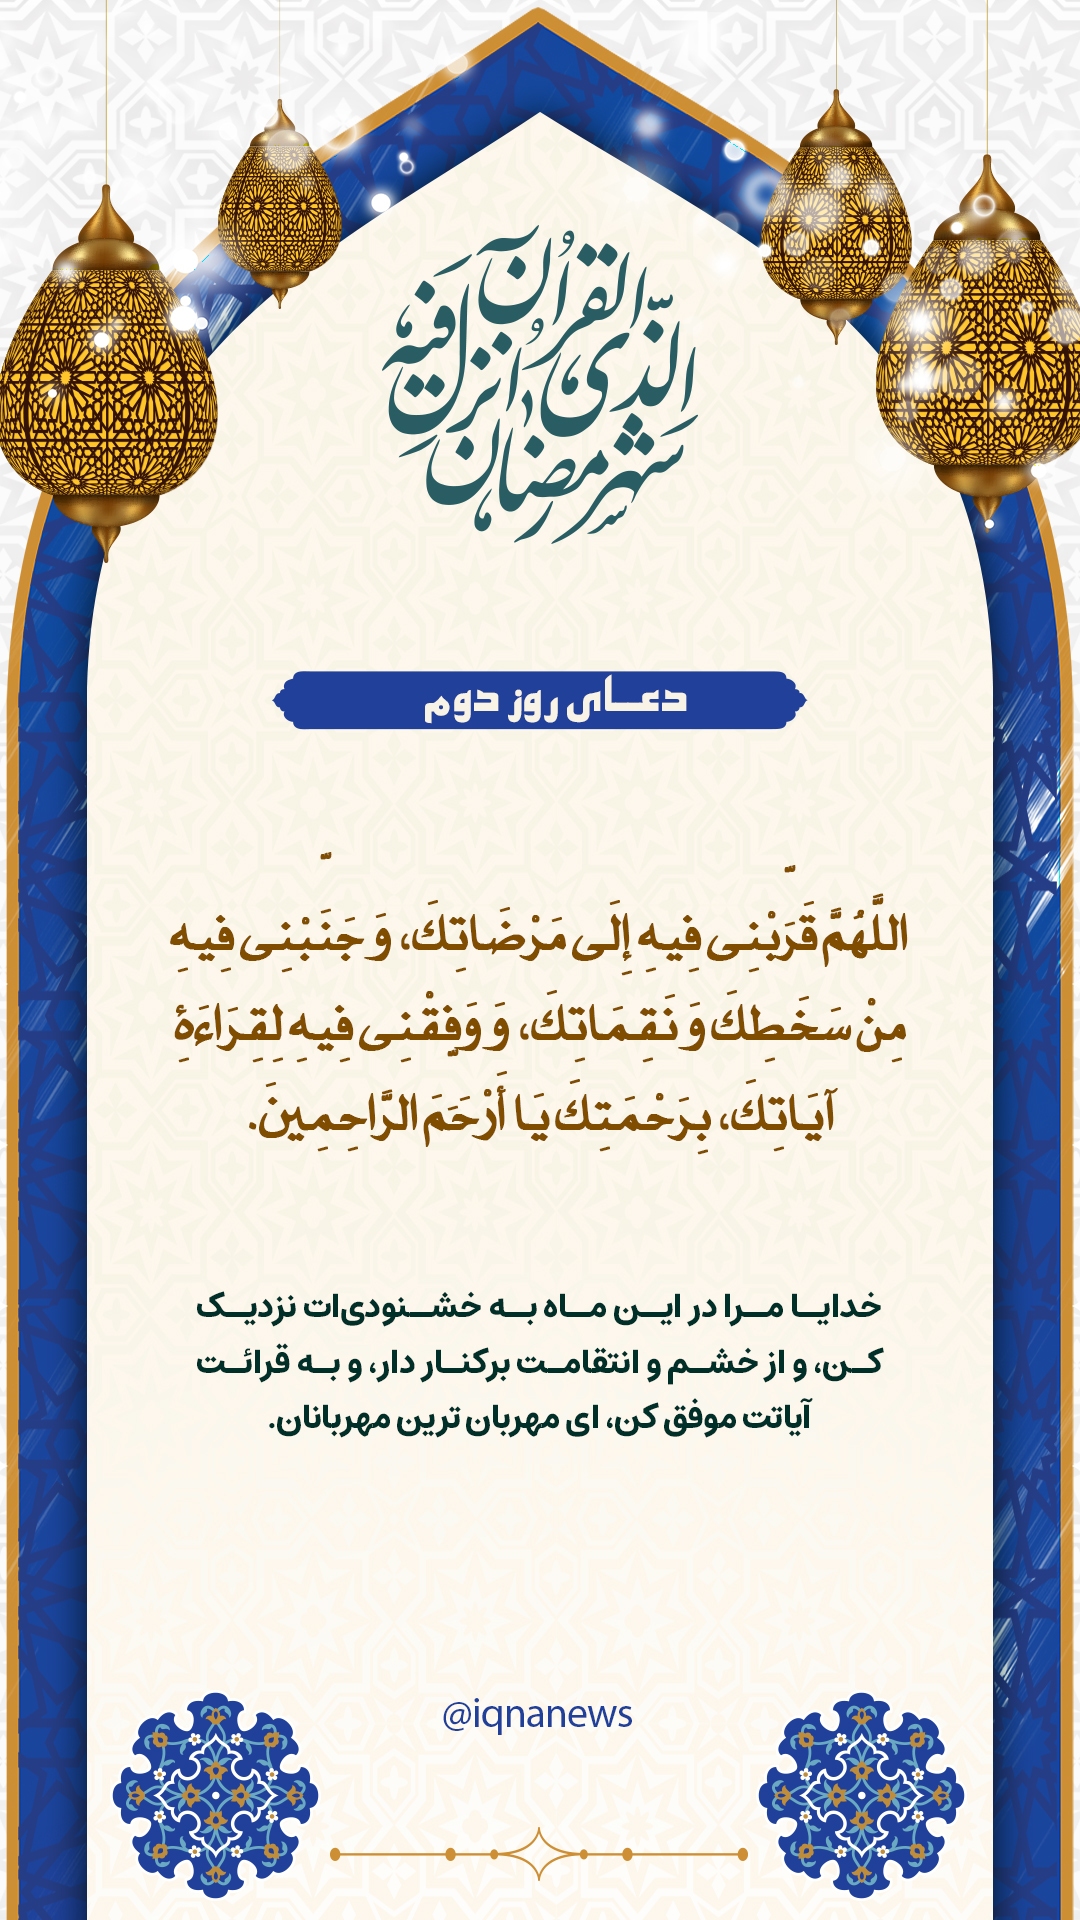 شهر رمضان الذی انزل فیه القرآن
دعـای روز دوم
اللَّهُمَّ قَرِّبْنِی فِیهِ إِلَی مَرْضَاتِكَ، وَ جَنِّبْنِی فِیهِ
مِنْ سَخَطِكَ وَ نَقِمَاتِكَ، وَ وَفِّقْنِی فِیهِ لِقِرَاءَةِ
آیَاتِكَ، بِرَحْمَتِكَ یَا أَرْحَمَ الرَّاحِمِینَ.
خدایـا مـرا در ایـن مـاه بـه خشـنودی‌ات نزدیـک
کـن، و از خشـم و انتقامـت برکنـار دار، و بـه قرائـت
آیاتت موفق کن، ای مهربان ترین مهربانان.
@iqnanews